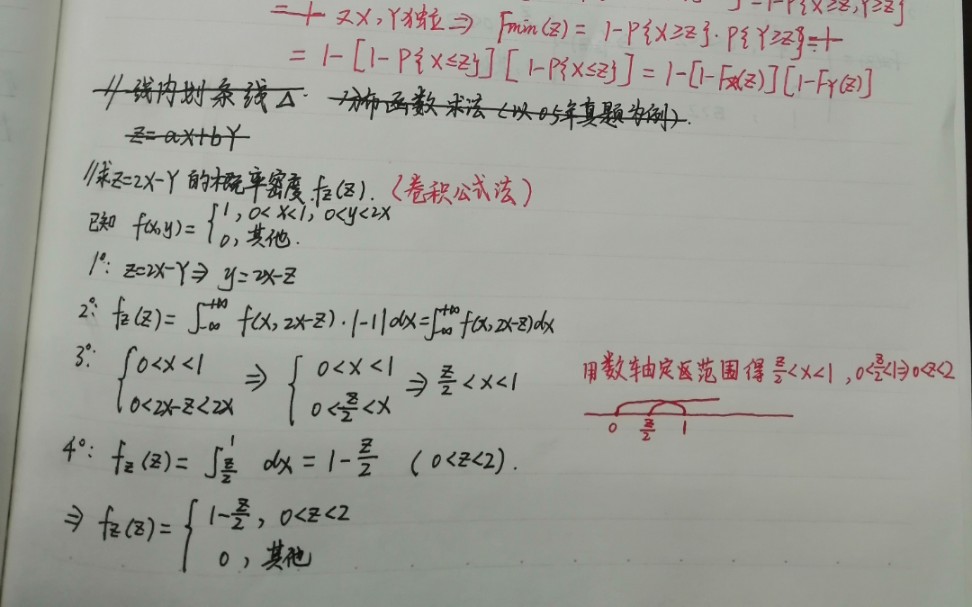 =1-P{X≥z,Y≥z}
= 1- 又X,Y独立⇒ Fmin(z) = 1-P{X≥z}·P{Y≥z}=1-
= 1-[1-P{X≤z}][1-P{X≤z}] = 1-[1-FX(z)][1-FY(z)]
//线内划条线△. 分布函数求法(以05年真题为例).
Z=aX+bY
//求Z=2X-Y的概率密度fz(z).(卷积公式法)
已知 f(x,y)={1, 0<x<1, 0<y<2x
0, 其他.
1°: Z=2X-Y⇒ y=2x-z
2°: fz(z)=∫-∞+∞ f(x,2x-z)·|-1|dx=∫-∞+∞ f(x,2x-z)dx
3°: {0<x<1 ⇒ {0<x<1 ⇒ z/2<x<1
0<2x-z<2x 0<z/2<x
用数轴定区范围得z/2<x<1,0<z/2<1⇒0<z<2
0 z/2 1
4°: fz(z)=∫z/2 1 dx=1-z/2 (0<z<2).
⇒ fz(z)={1-z/2, 0<z<2
0, 其他